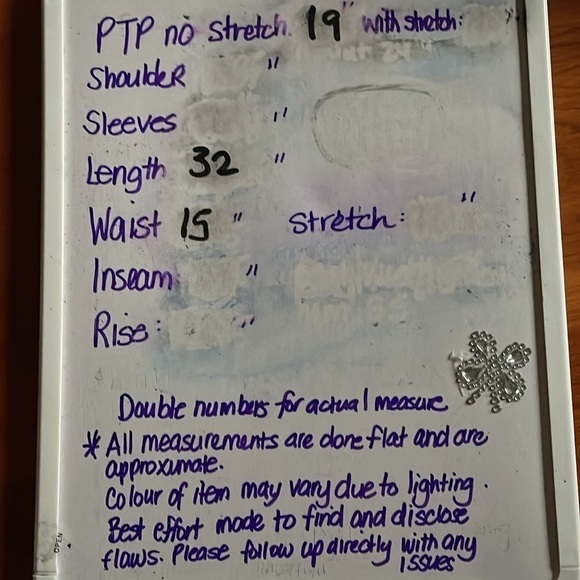 PTP no stretch. 19" with stretch:
Shoulder "
Sleeves "
Length 32 "
Waist 15 " Stretch: "
Inseam: "
Rise: "
Double numbers for actual measure
* All measurements are done flat and are
approximate.
Colour of item may vary due to lighting.
Best effort made to find and disclose
flaws. Please follow up directly with any
issues
OPEN